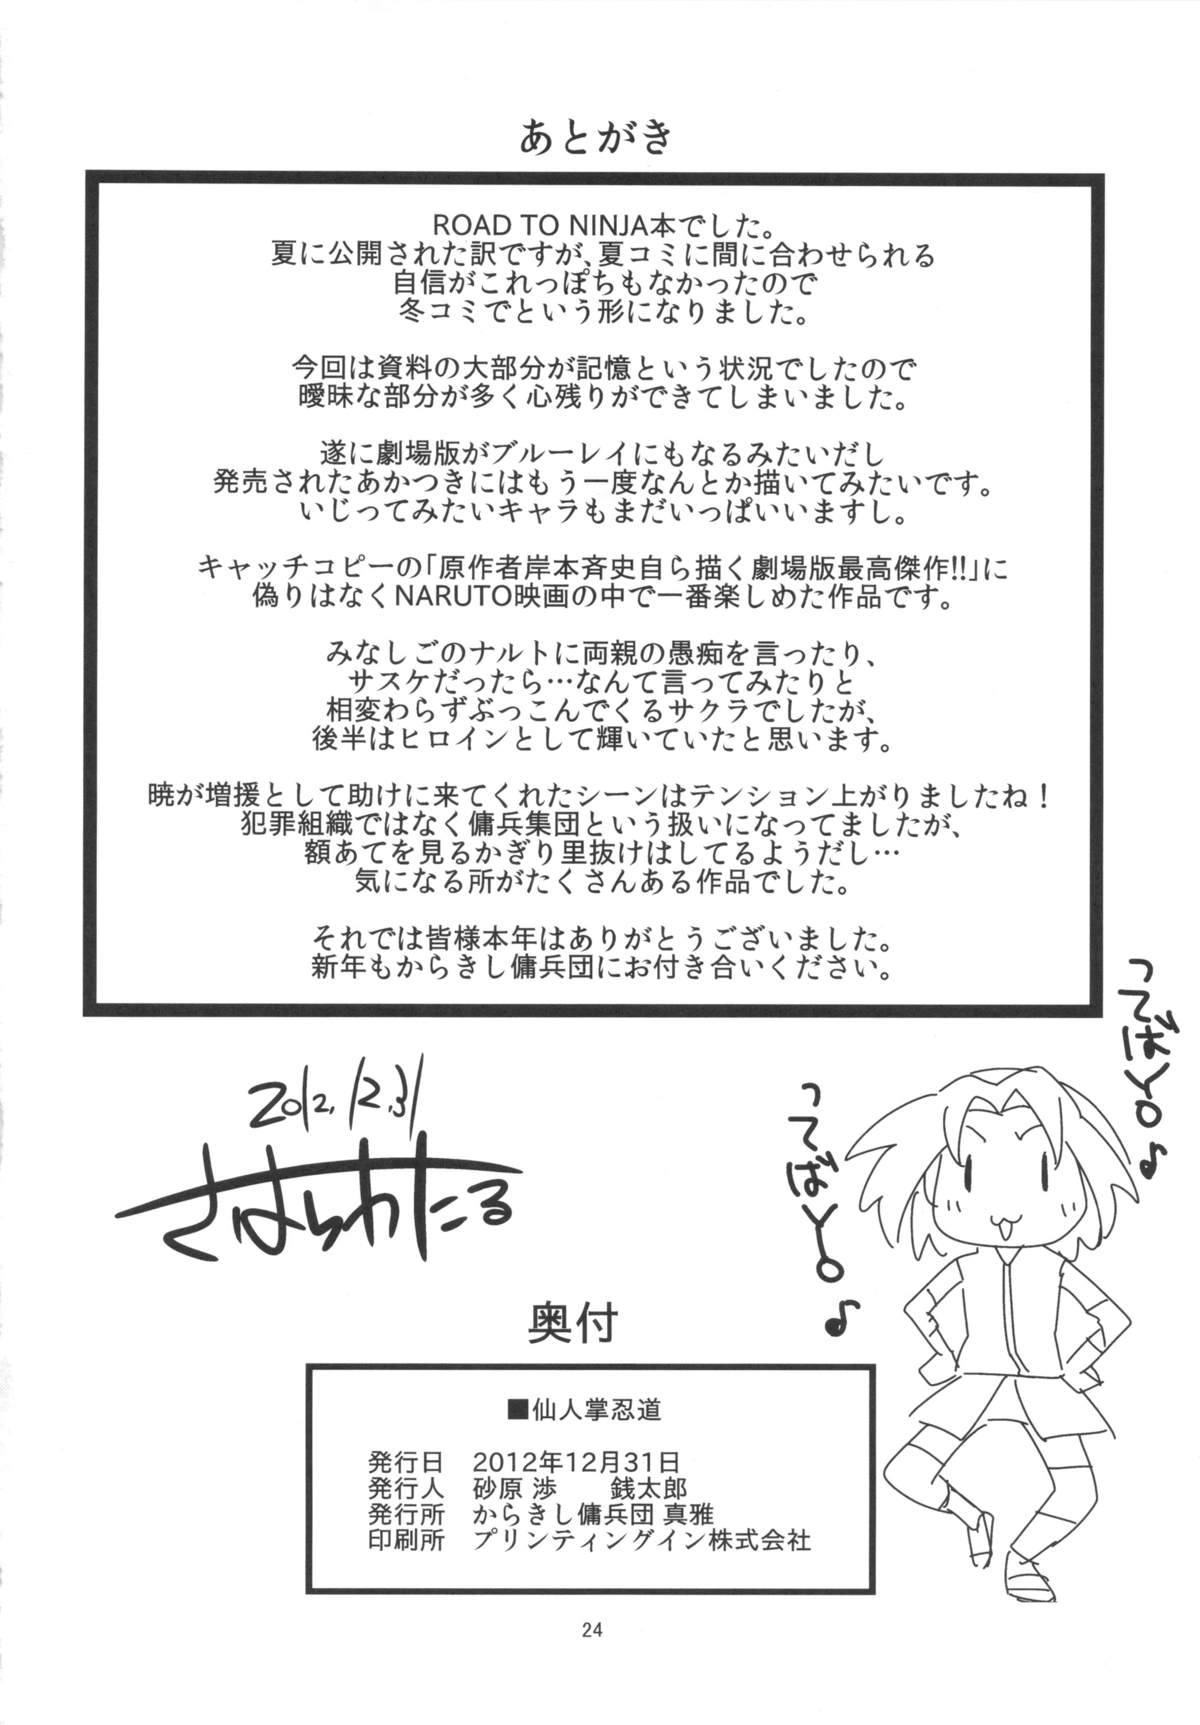 あとがき
ROAD TO NINJA本でした。
夏に公開された訳ですが、夏コミに間に合わせられる
自信がこれっぽちもなかったので
冬コミでという形になりました。
今回は資料の大部分が記憶という状況でしたので
曖昧な部分が多く心残りができてしまいました。
遂に劇場版がブルーレイにもなるみたいだし
発売されたあかつきにはもう一度なんとか描いてみたいです。
いじってみたいキャラもまだいっぱいいますし。
キャッチコピーの「原作者岸本斉史自ら描く劇場版最高傑作!!」に
偽りはなくNARUTO映画の中で一番楽しめた作品です。
みなしごのナルトに両親の愚痴を言ったり、
サスケだったら…なんて言ってみたりと
相変わらずぶっこんでくるサクラでしたが、
後半はヒロインとして輝いていたと思います。
暁が増援として助けに来てくれたシーンはテンション上がりましたね！
犯罪組織ではなく傭兵集団という扱いになってましたが、
額あてを見るかぎり里抜けはしてるようだし…
気になる所がたくさんある作品でした。
それでは皆様本年はありがとうございました。
新年もからきし傭兵団にお付き合いください。
ってばYO♪
ってばYO♪
2012.12.31
さはらわたる
奥付
■仙人掌忍道
発行日　2012年12月31日
発行人　砂原 渉　　銭太郎
発行所　からきし傭兵団 真雅
印刷所　プリンティングイン株式会社
24